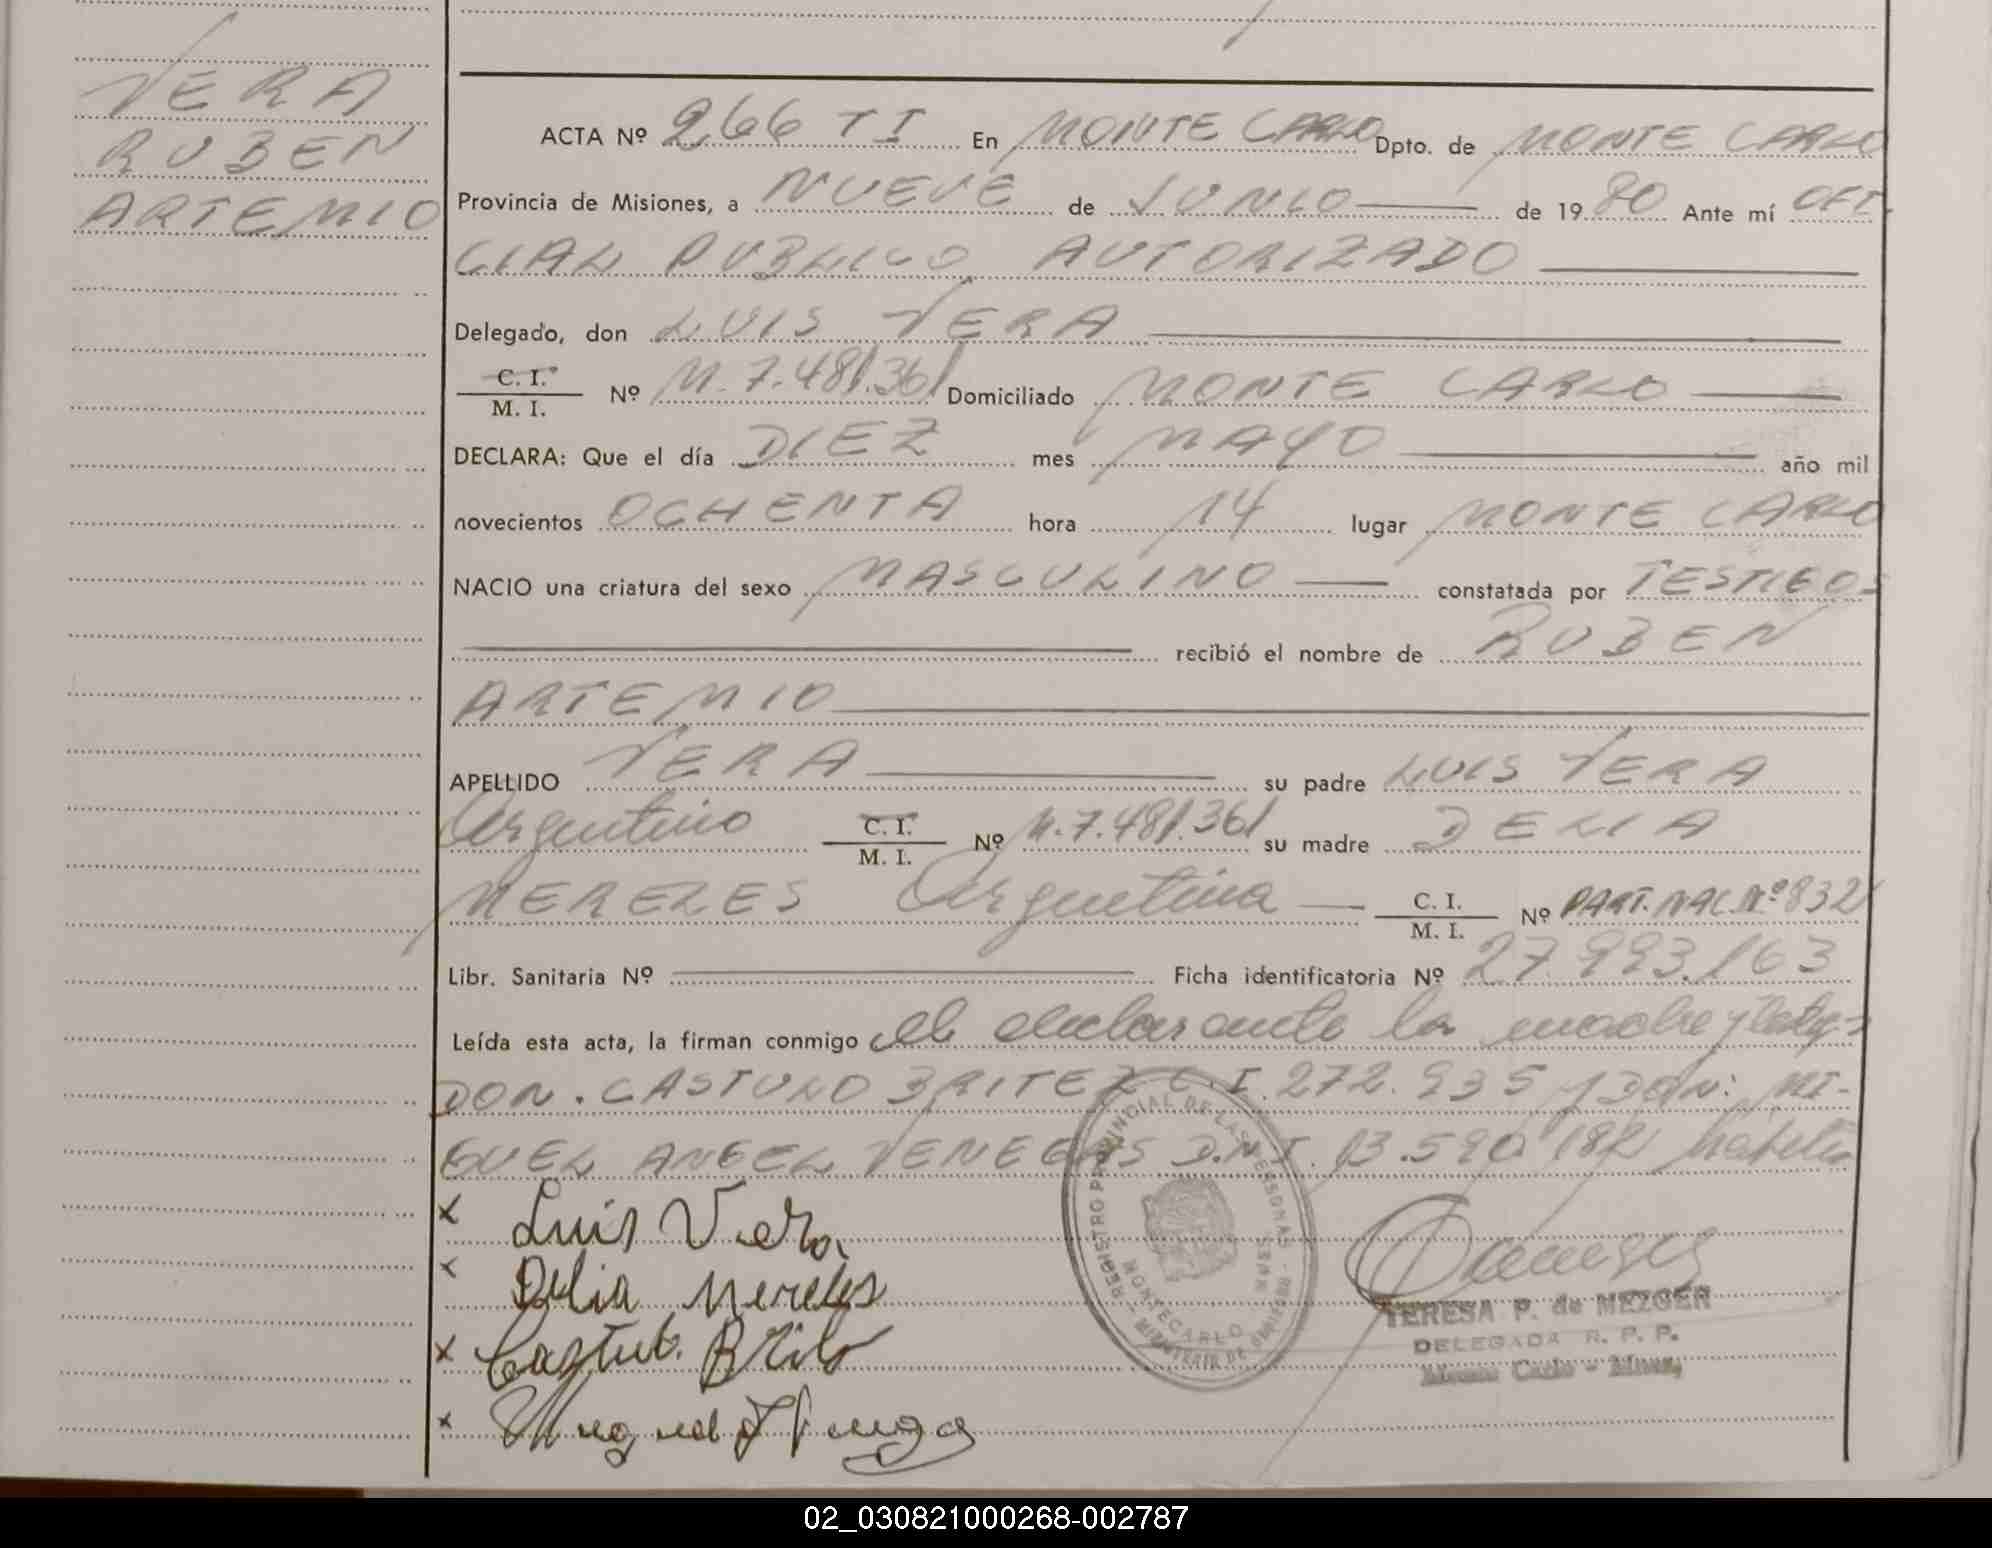 VERA
RUBEN
ARTEMIO
ACTA Nº 266 TI En MONTE CARLO Dpto. de MONTE CARLO
Provincia de Misiones, a NUEVE de JUNIO de 1980 Ante mí OFI-
CIAL PUBLICO AUTORIZADO
Delegado, don LUIS VERA
C. I. / M. I. Nº M. 7.481.361 Domiciliado MONTE CARLO
DECLARA: Que el día DIEZ mes MAYO año mil
novecientos OCHENTA hora 14 lugar MONTE CARLO
NACIO una criatura del sexo MASCULINO constatada por TESTIGOS
recibió el nombre de RUBEN
ARTEMIO
APELLIDO VERA su padre LUIS VERA
Argentino C. I. / M. I. Nº M. 7.481.361 su madre DELIA
MERELES Argentina C. I. / M. I. Nº PART. NAC. Nº 832
Libr. Sanitaria Nº Ficha identificatoria Nº 27.993.163
Leída esta acta, la firman conmigo el declarante la madre y
DON. CASTULO BRITEZ C.I. 272.935 y DON: MI-
GUEL ANGEL VENEGAS D.N.I. 13.590.182
x Luis Vera
x Delia Mereles
x
x
REGISTRO PROVINCIAL DE LAS PERSONAS - MINISTERIO DE GOBIERNO
MONTECARLO
TERESA P. de MEZGER
DELEGADA R. P. P.
Monte Carlo - Mnes.
02_030821000268-002787